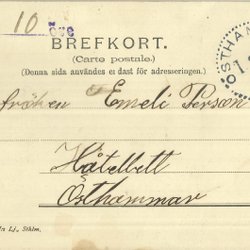 10 öre
BREFKORT.
(Carte postale.)
(Denna sida användes endast för adresseringen.)
fröken Emeli Person
Håtelbell
Östhammar
ÖSTHAM